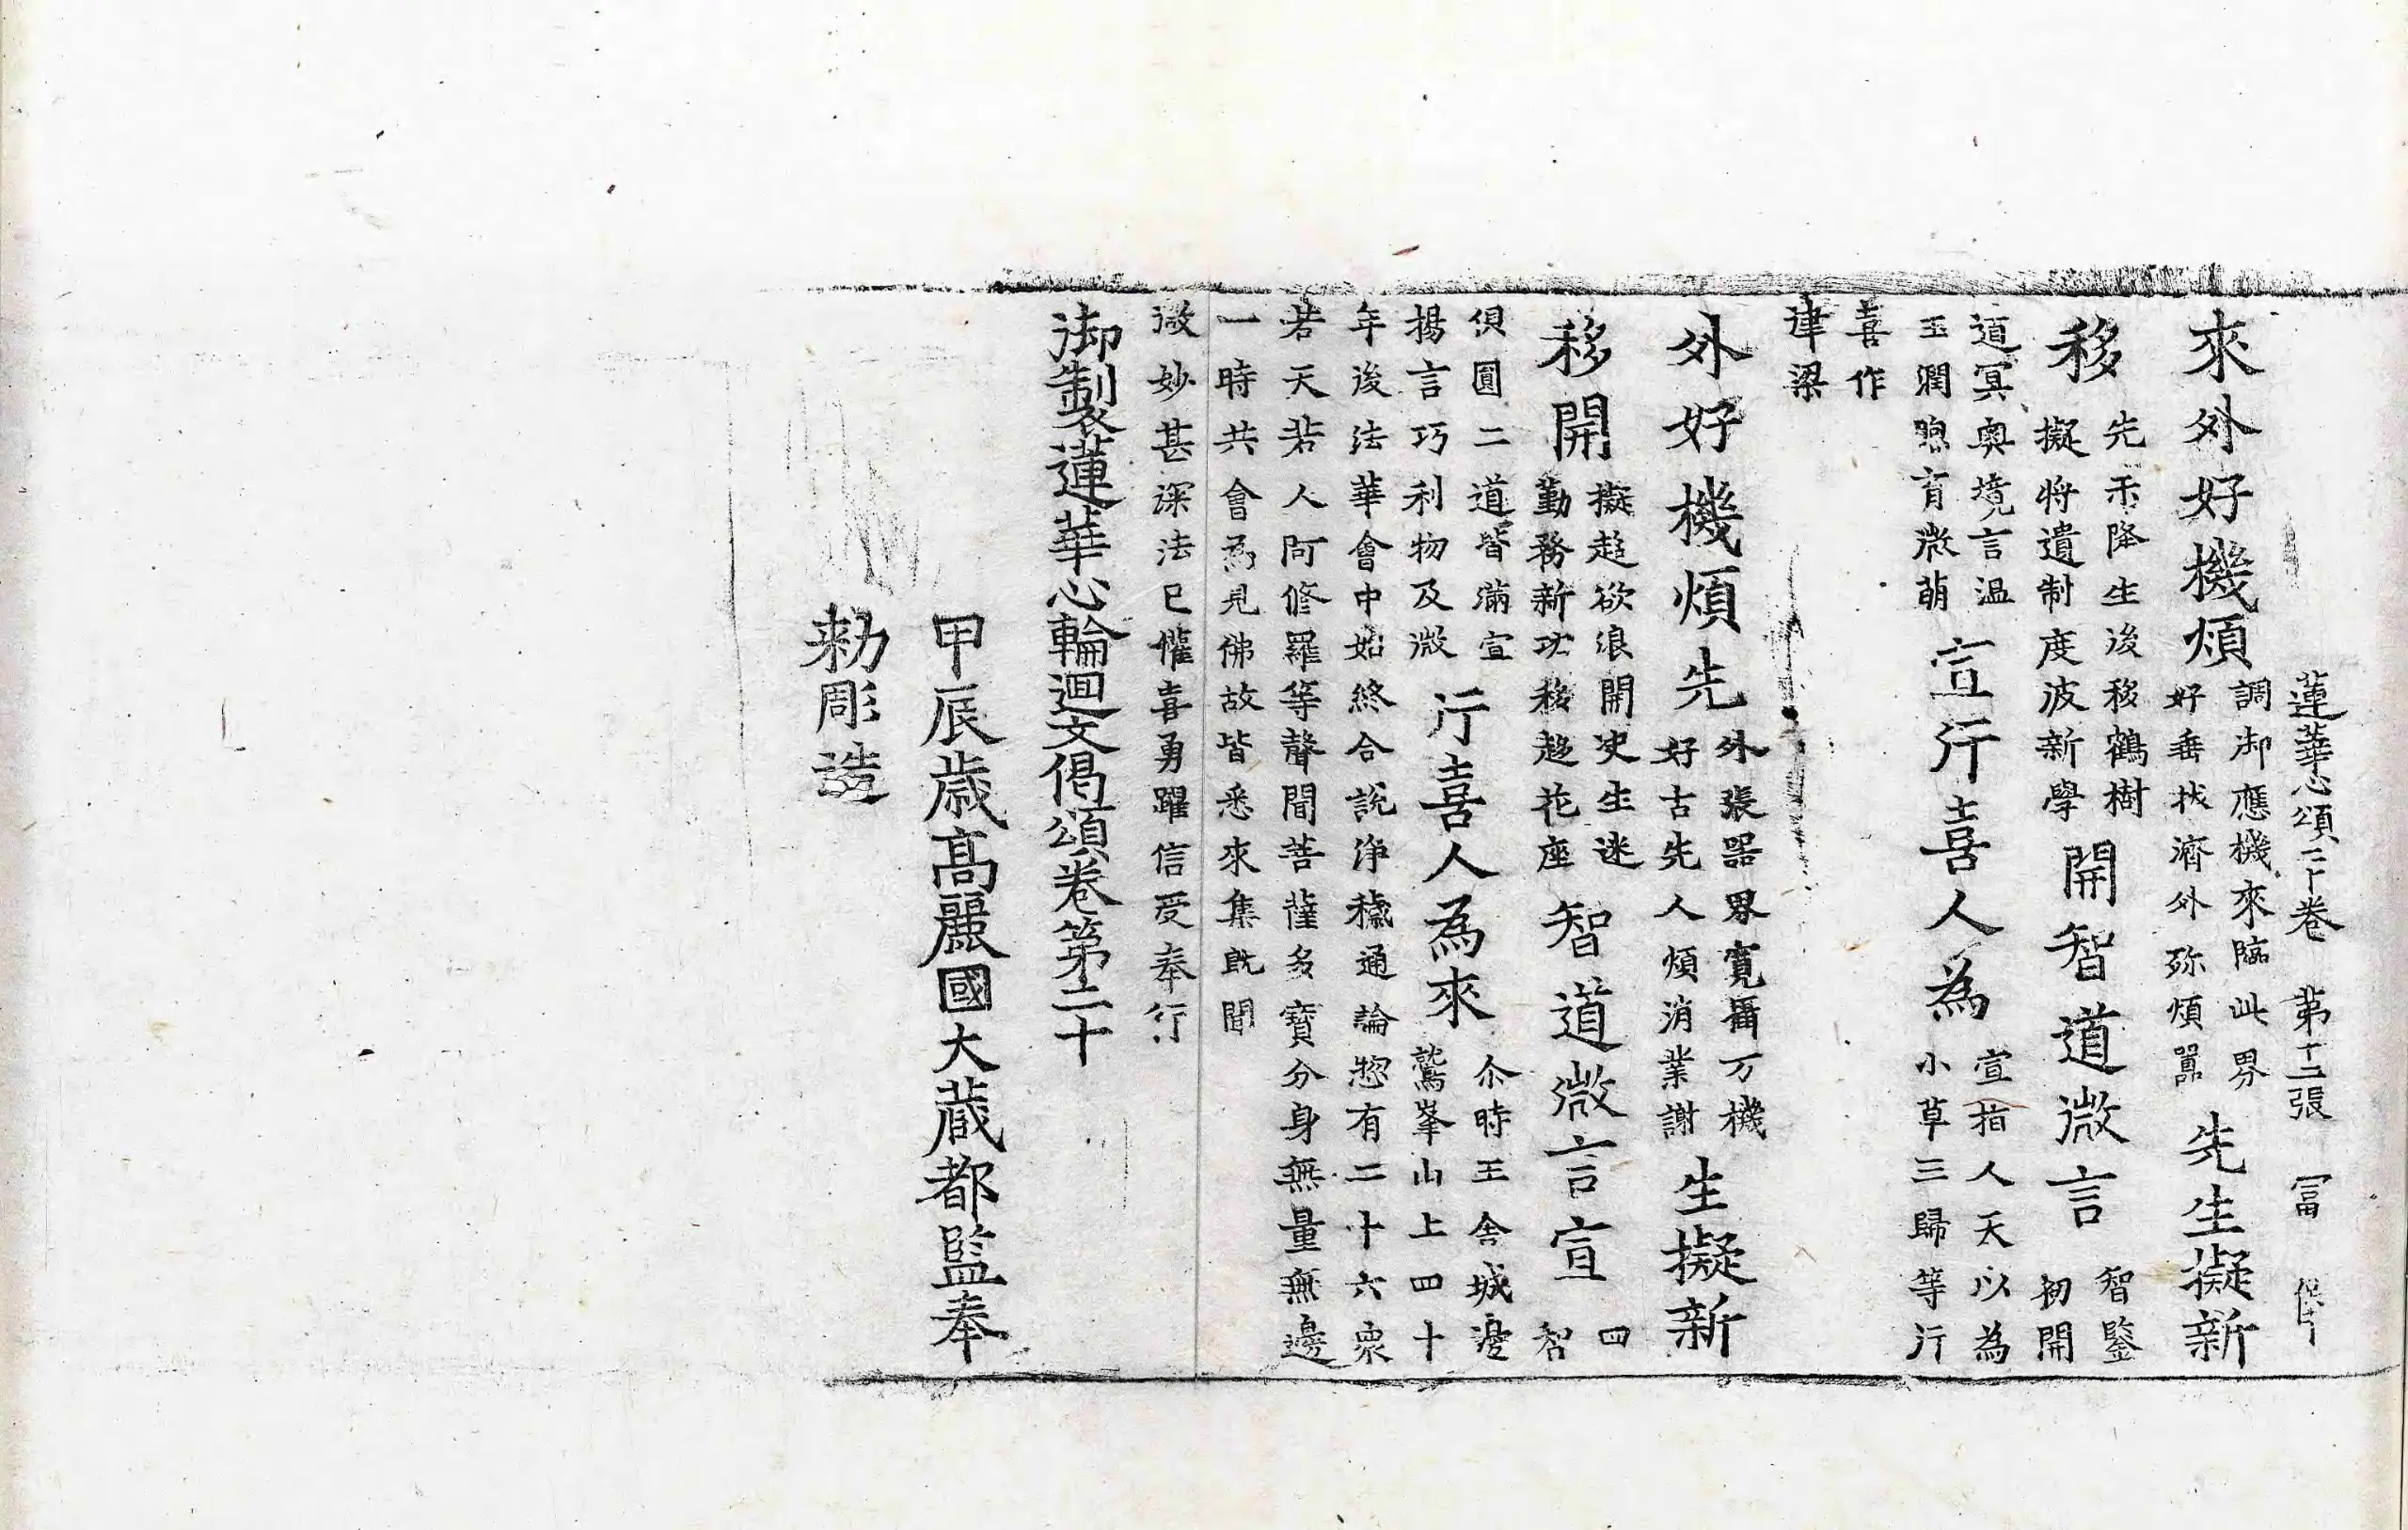 蓮華心頌二十卷　第十二張　冨
來外好機煩調御應機來臨此界好垂拔濟外弥煩嚣先生擬新
移先示降生後移鶴樹擬將遺制度波新學開智道微言智鑒初開
道冥奥境言温玉潤煦育微萌宣行喜人為宣指人天以為小草三歸等行
喜作
津梁
外好機煩先外張器界寬攝万機好古先人煩消業謝生擬新
移開擬趍欲浪開叏生迷勤務新功移趍花座智道微言宣四智
俱圓二道皆滿宣揚言巧利物及微行喜人為來尒時王舍城邊鷲峯山上四十
年後法華會中始終合說淨穢通論惣有二十六衆
若天若人阿脩羅等聲聞菩薩多寶分身無量無邊
一時共會為見佛故皆悉來集既聞
微妙甚深法已懽喜勇躍信受奉行
御製蓮華心輪迴文偈頌卷第二十
甲辰歳髙麗國大藏都監奉
勑彫造